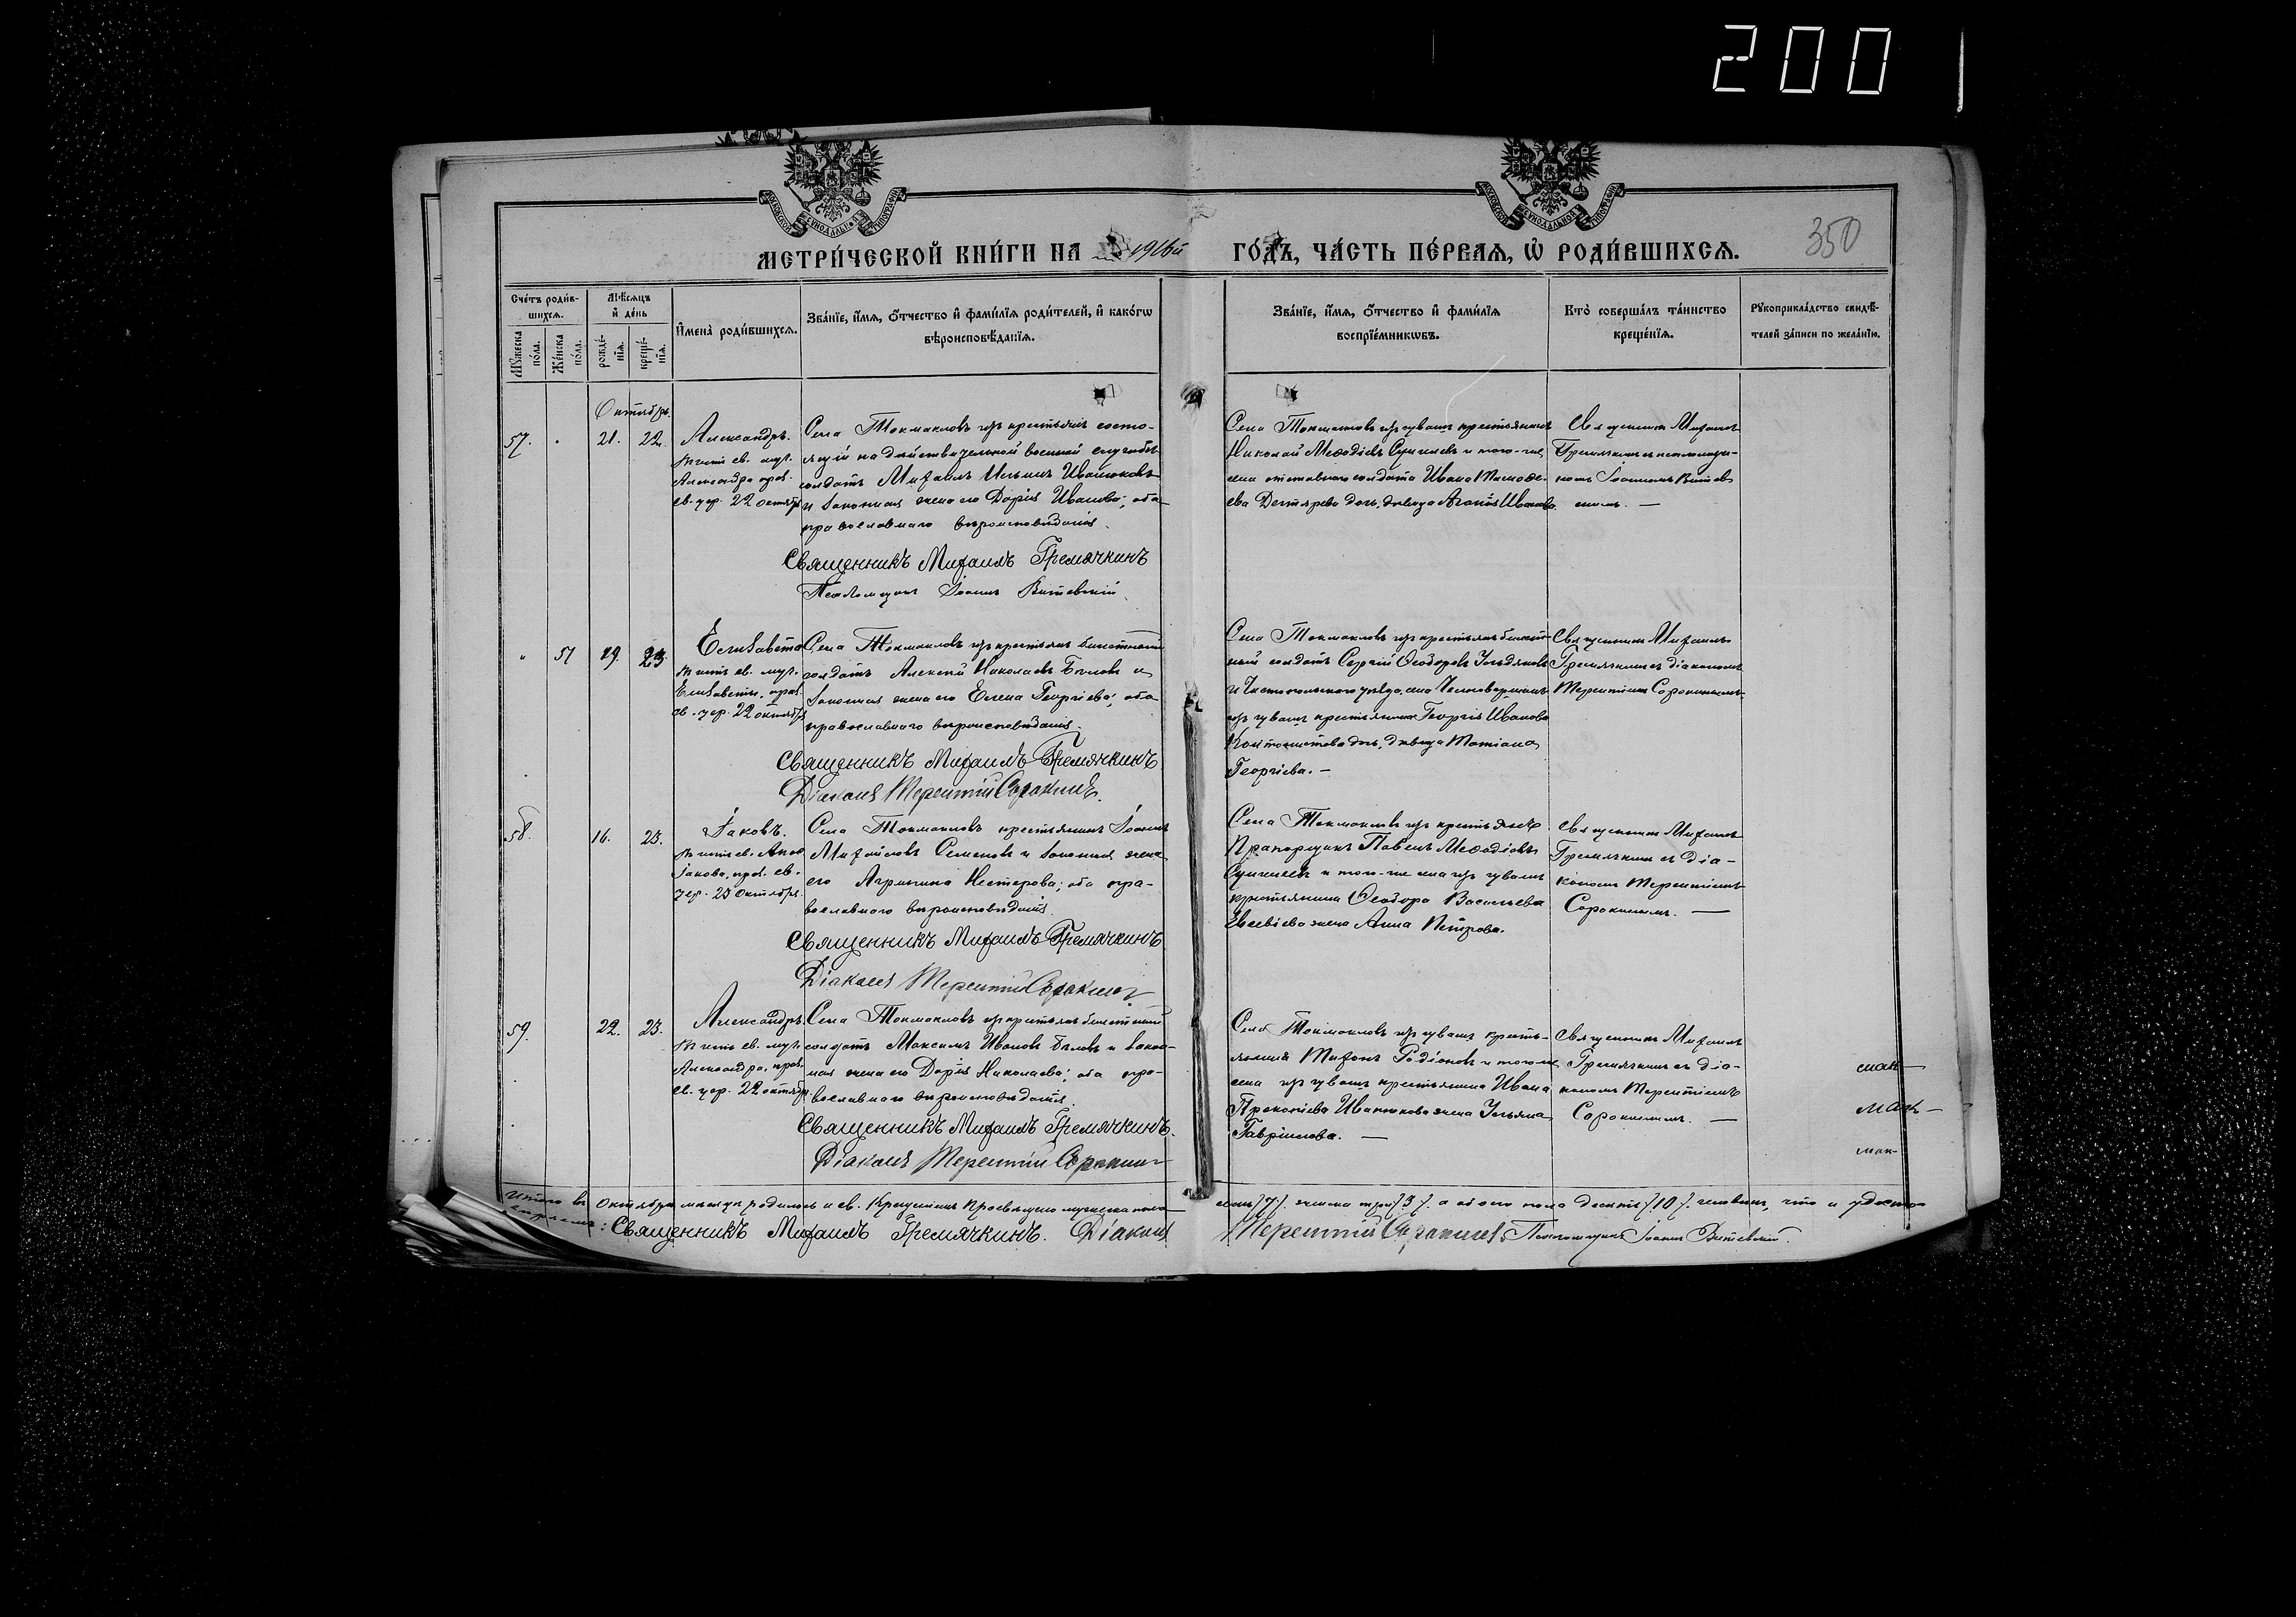 200
350
МЕТРИ́ЧЕСКОЙ КНИ́ГИ НА 1916й ГО́ДЪ, ЧА́СТЬ ПЕ́РВАѦ, Ѡ҆ РОДИ́ВШИХСѦ.
Сче́тъ роди́в-
шихсѧ.
Мꙋ́жеска по́ла.
Же́нска по́ла.
Мѣ́сѧцъ
и҆ де́нь
рожде́-
нїѧ.
креще́-
нїѧ.
И҆мена̀ роди́вшихсѧ.
Зва́нїе, и҆́мѧ, ѻ҆́тчество и҆ фами́лїѧ роди́телей, и҆ како́гѡ
вѣроисповѣ́данїѧ.
Зва́нїе, и҆́мѧ, ѻ҆́тчество и҆ фами́лїѧ
воспрїе́мникѡвъ.
Кто̀ соверша́лъ та́инство
креще́нїѧ.
Рꙋкоприкла́дство свидѣ́-
телей за́писи по жела́нїю.
Октябрь.
57. 21. 22.
Александръ.
Александра праз.
св. цер. 22 октября
Села Токмаклов изъ крестьянъ состо-
ящій на действительной военной службѣ
солдатъ Михаилъ Ильинъ Иванюковъ
и законная жена его Дарія Иванова; оба
православнаго вѣроисповѣданія.
Священникъ Михаилъ Гремячкинъ
Псаломщикъ Іоаннъ Витевскій
Села Токмаклов изъ чувашъ крестьянинъ
Николай Меѳодіевъ Сунчелевъ и того-же
села отставного солдата Ивана Тимоѳе-
ева Дегтярева дочь, дѣвица Агаѳія Иванова
Священникъ Михаилъ
Гремячкинъ съ псаломщи-
комъ Іоанномъ Витев-
скимъ. —
" 51 19. 23.
Елизавета
Елизаветы, праз.
св. цер. 22 октября
Села Токмаклов изъ крестьянъ билетный
солдатъ Алексѣй Николаевъ Бѣловъ и
законная жена его Елена Георгіева; оба
православнаго вѣроисповѣданія.
Священникъ Михаилъ Гремячкинъ
Діаконъ Терентій Сорокинъ.
Села Токмаклов изъ крестьянъ билет-
ный солдатъ Сергій Ѳеодоровъ Ульдяковъ
и Чистопольскаго уѣзда, села
изъ чувашъ крестьянина Георгія Иванова
дочь, дѣвица Татіана
Георгіева. —
Священникъ Михаилъ
Гремячкинъ съ діакономъ
Терентіемъ Сорокинымъ.
58. 16. 23.
Іаковъ.
Іакова, праз. св.
цер. 23 октября
Села Токмаклов крестьянинъ Іоаннъ
Михайловъ Семеновъ и законная жена
его Агрипина Нестерова; оба пра-
вославнаго вѣроисповѣданія.
Священникъ Михаилъ Гремячкинъ
Діаконъ Терентій Сорокинъ
Села Токмаклов изъ крестьянъ
Прапорщикъ Павелъ Меѳодіевъ
Сунчелевъ и того-же села изъ чувашъ
крестьянина Ѳеодора Васильева
Евсевіева жена Анна Петрова.
Священникъ Михаилъ
Гремячкинъ съ діа-
кономъ Терентіемъ
Сорокинымъ. —
59. 22. 23.
Александръ.
Александра, праз.
св. цер. 22 октября
Села Токмаклов изъ крестьянъ билетный
солдатъ Максимъ Ивановъ Бѣловъ и закон-
ная жена его Дарія Николаева; оба пра-
вославнаго вѣроисповѣданія.
Священникъ Михаилъ Гремячкинъ.
Діаконъ Терентій Сорокинъ
Села Токмаклов изъ чувашъ кресть-
янинъ Тихонъ Родіоновъ и того-же
села изъ чувашъ крестьянина Ивана
Прокопіева Иванюкова жена Ульяна
Гавріилова. —
Священникъ Михаилъ
Гремячкинъ съ діа-
кономъ Терентіемъ
Сорокинымъ. —
Итого въ Октябрѣ мѣсяцѣ родилось и св. Крещеніемъ Просвѣщено мужеска пола семь /7/. женска три /3/. а обоего пола десять /10/. человѣкъ, что и удосто-
вѣряемъ: Священникъ Михаилъ Гремячкинъ. Діаконъ Терентій Сорокинъ. Псаломщикъ Іоаннъ Витевскій.